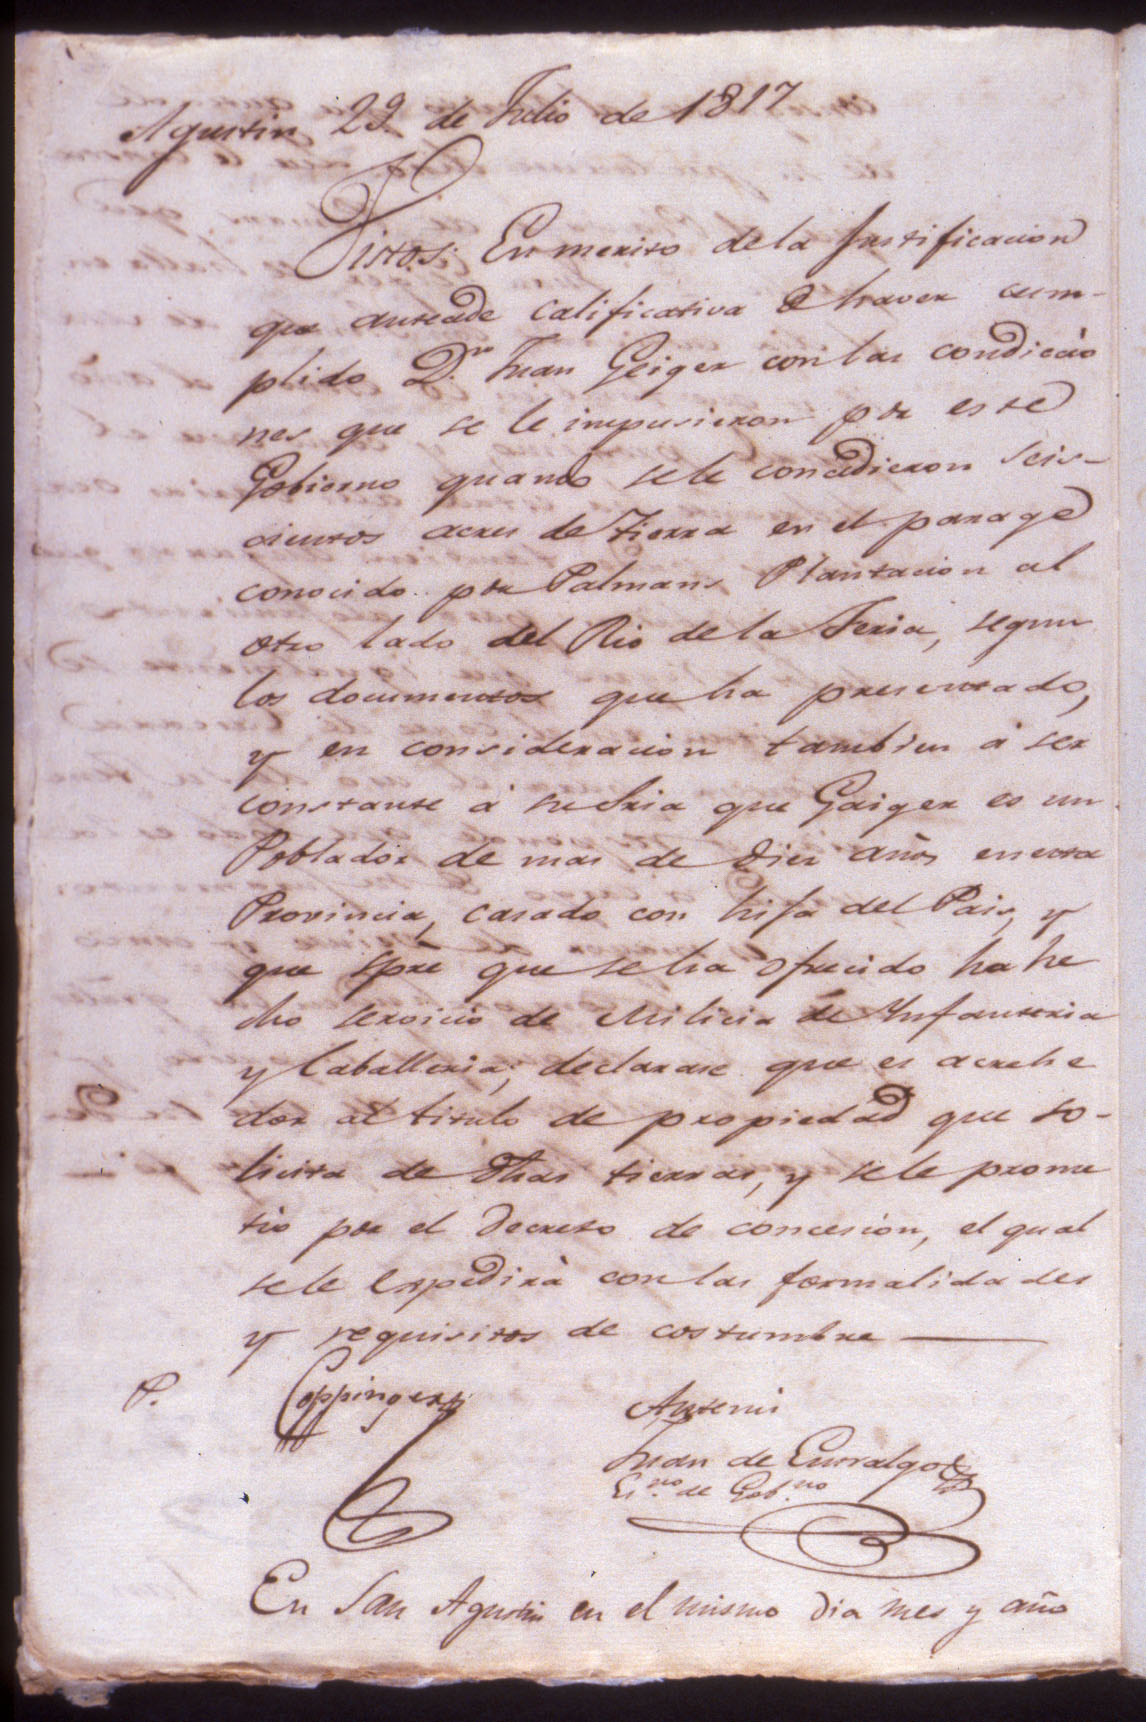 Agustin 29 de Julio de 1817
Vistos: En merito de la justificacion
que antecede calificativa de haver cum-
plido Dn. Juan Geiger con las condicio
nes que se le impusieron por este
Gobierno quando se le concedieron seis-
cientos acres de tierra en el parage
conocido por Palmans Plantacion al
otro lado del Rio de la Feria, segun
los documentos que ha presentado,
y en consideracion tambien á ser
constante á su Sria que Gaiger es un
Poblador de mas de diez años en esta
Provincia, casado con hija del Pais, y
que spre que se ha ofrecido ha he
cho servicio de Milicia de Ynfanteria
y Caballeria; declarase que es acrehe
dor al titulo de propiedad que so-
licita de dhas tierras, y se le prome
tió por el Decreto de concesion, el qual
se le expedirà con las formalidades
y requisitos de costumbre
P. Coppinger Antemi
Juan de Entralgo
Esno. de Gobno.
En San Agustin en el mismo dia mes y año